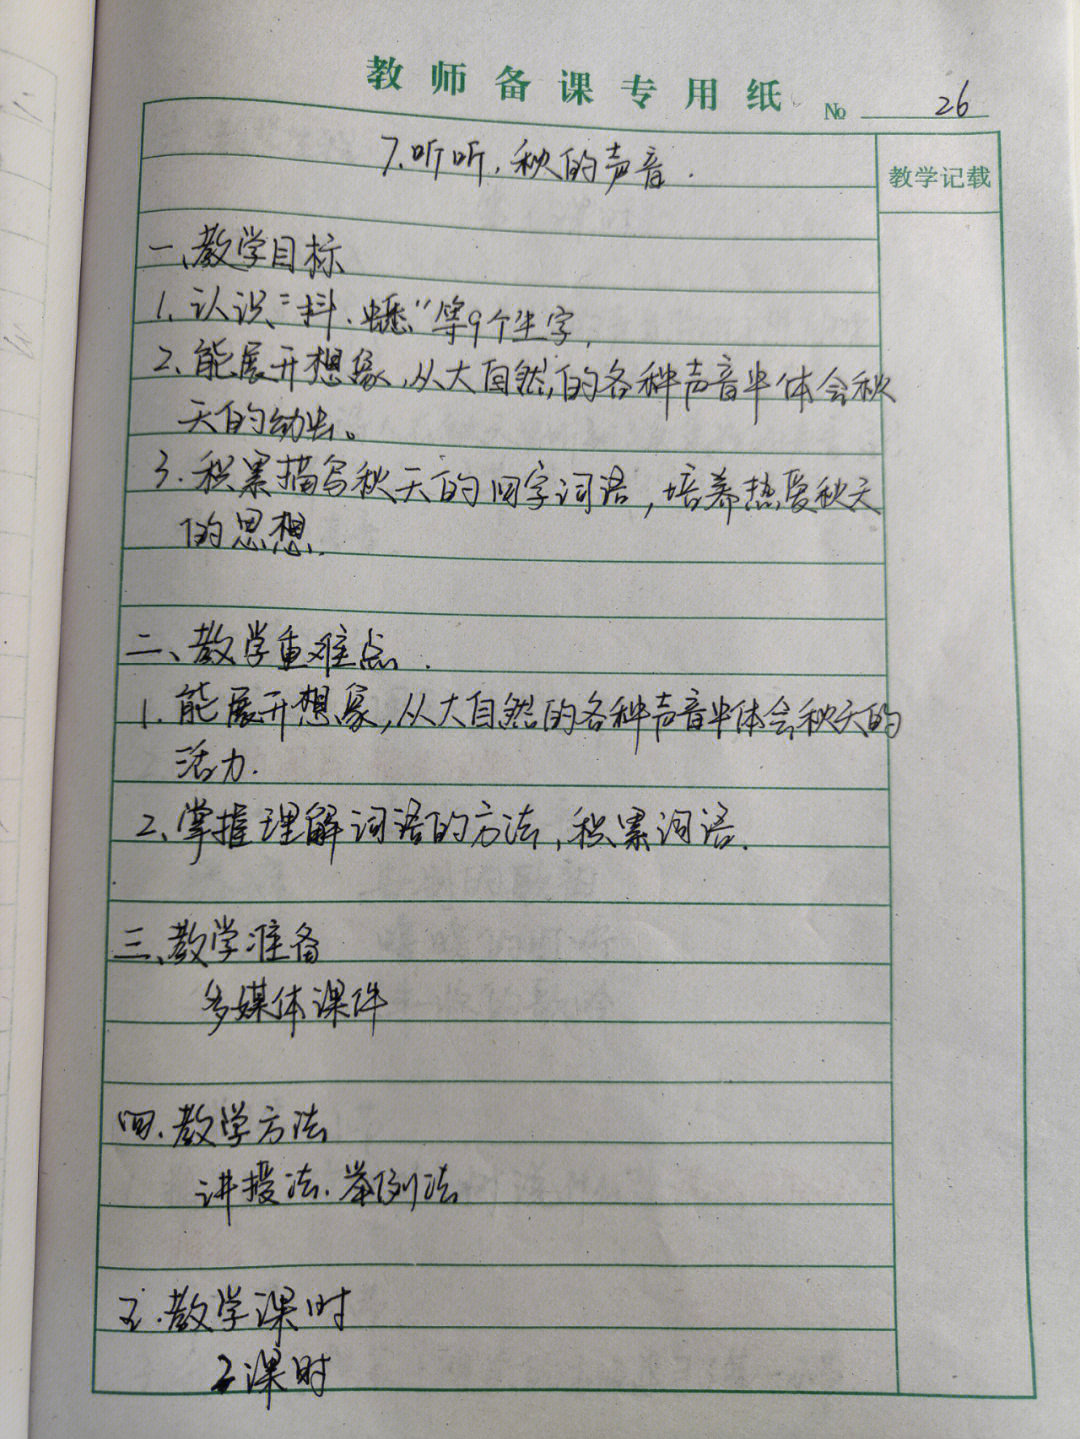 教师备课专用纸
No 26
7.听听，秋的声音.
教学记载
一、教学目标
1. 认识“抖、蟋”等9个生字,
2. 能展开想象，从大自然的各种声音中体会秋
天的。
3. 积累描写秋天的四字词语，培养热爱秋天
的思想.
二、教学重难点.
1. 能展开想象，从大自然的各种声音中体会秋天的
活力.
2. 掌握理解词语的方法，积累词语.
三、教学准备
多媒体课件
四.教学方法
讲授法、举例法
五.教学课时
2课时